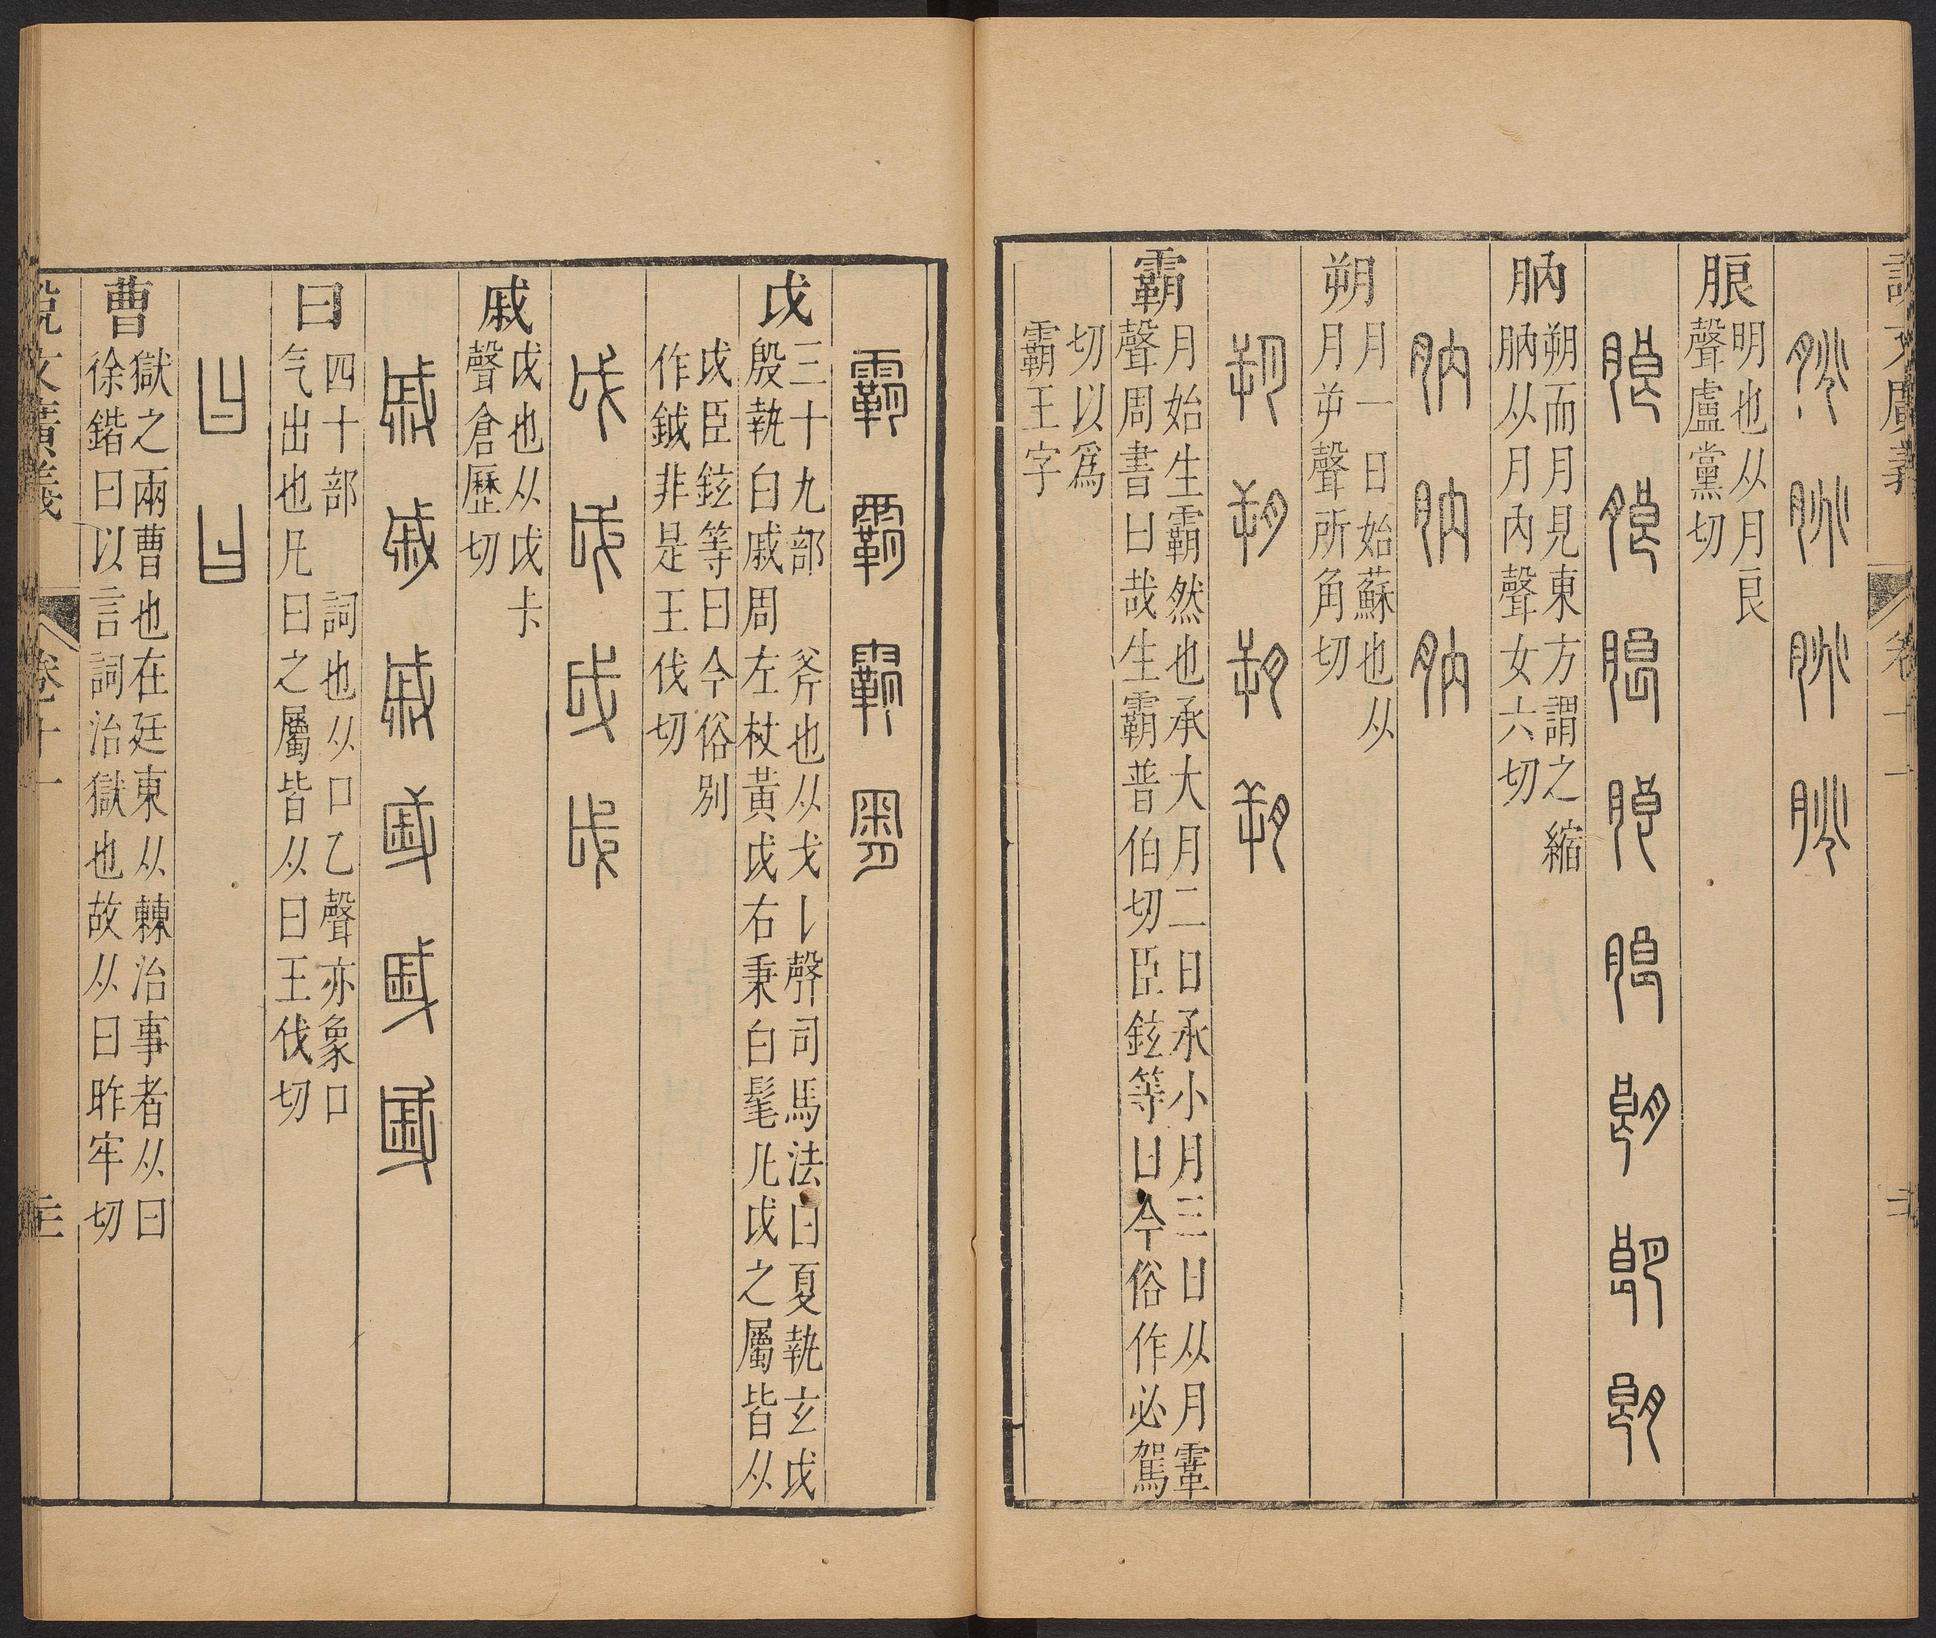 朖
明也从月良
聲盧黨切
肭
朔而月見東方謂之縮
肭从月內聲女六切
朔
月一日始蘇也从
月屰聲所角切
霸
月始生霸然也承大月二日承小月三日从月䨣
聲周書曰哉生霸普伯切臣鉉等曰今俗作必駕
切以爲
霸王字
戉
三十九部 斧也从戈𠄌聲司馬法曰夏執玄戉
殷執白戚周左杖黃戉右秉白髦凡戉之屬皆从
戉臣鉉等曰今俗別
作鉞非是王伐切
戚
戉也从戉尗
聲倉歷切
曰
四十部 詞也从口乙聲亦象口
气出也凡曰之屬皆从曰王伐切
曹
獄之兩曹也在廷東从㯥治事者从曰
徐鍇曰以言詞治獄也故从曰昨牢切
說文廣義 卷十一